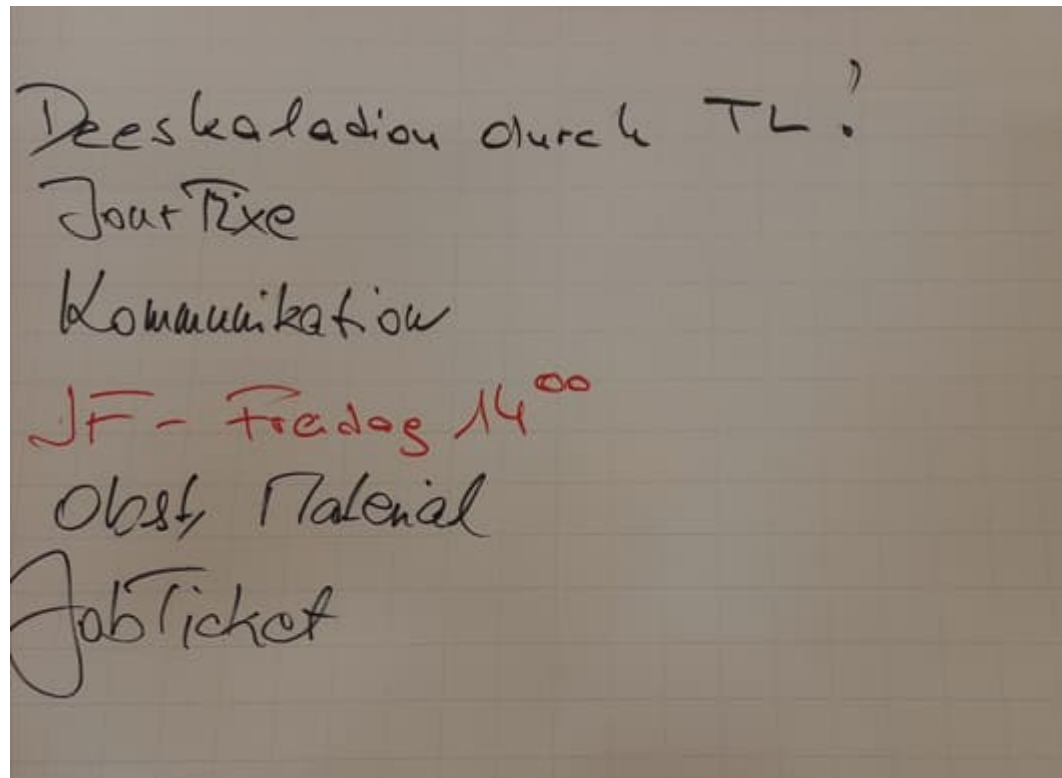 Deeskalation durch TL?
Jour Fixe
Kommunikation
JF - Freitag 14⁰⁰
Obst, Material
JobTicket